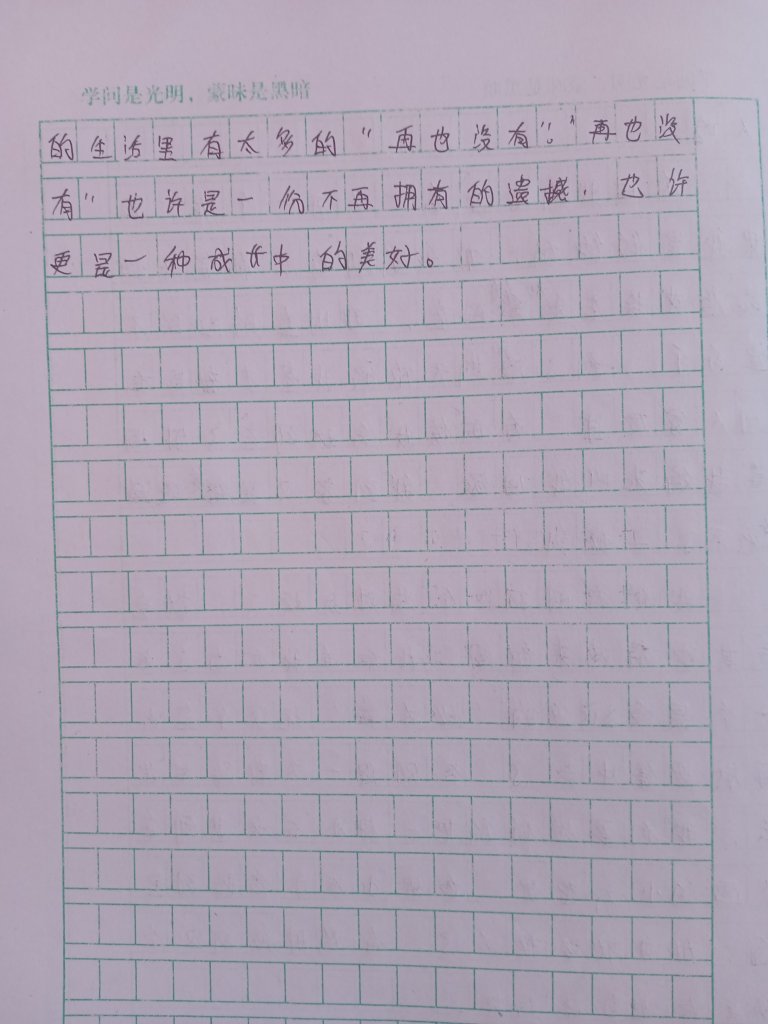 学问是光明，蒙昧是黑暗
的生活里有太多的“再也没有”。“再也没
有”也许是一份不再拥有的遗憾，也许
更是一种成长中的美好。